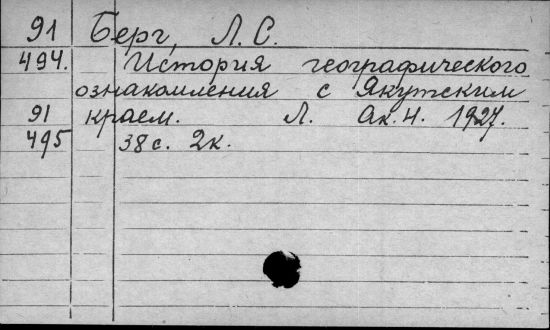 91 Берг, Л. С.
494. История географического
ознакомления с Якутским
91 краем. Л. Ак. Н. 1927.
495 38 с. 2к.